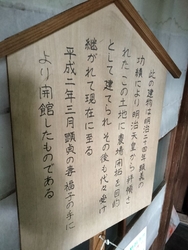 此の建物は明治二十四年祓美の
功績により明治天皇から拝領さ
れたこの土地に養場開拓を目的
として建てられその後も代々受け
継がれて現在に至る
平成二年三月顕夫の妻福子の手に
より開館したものである